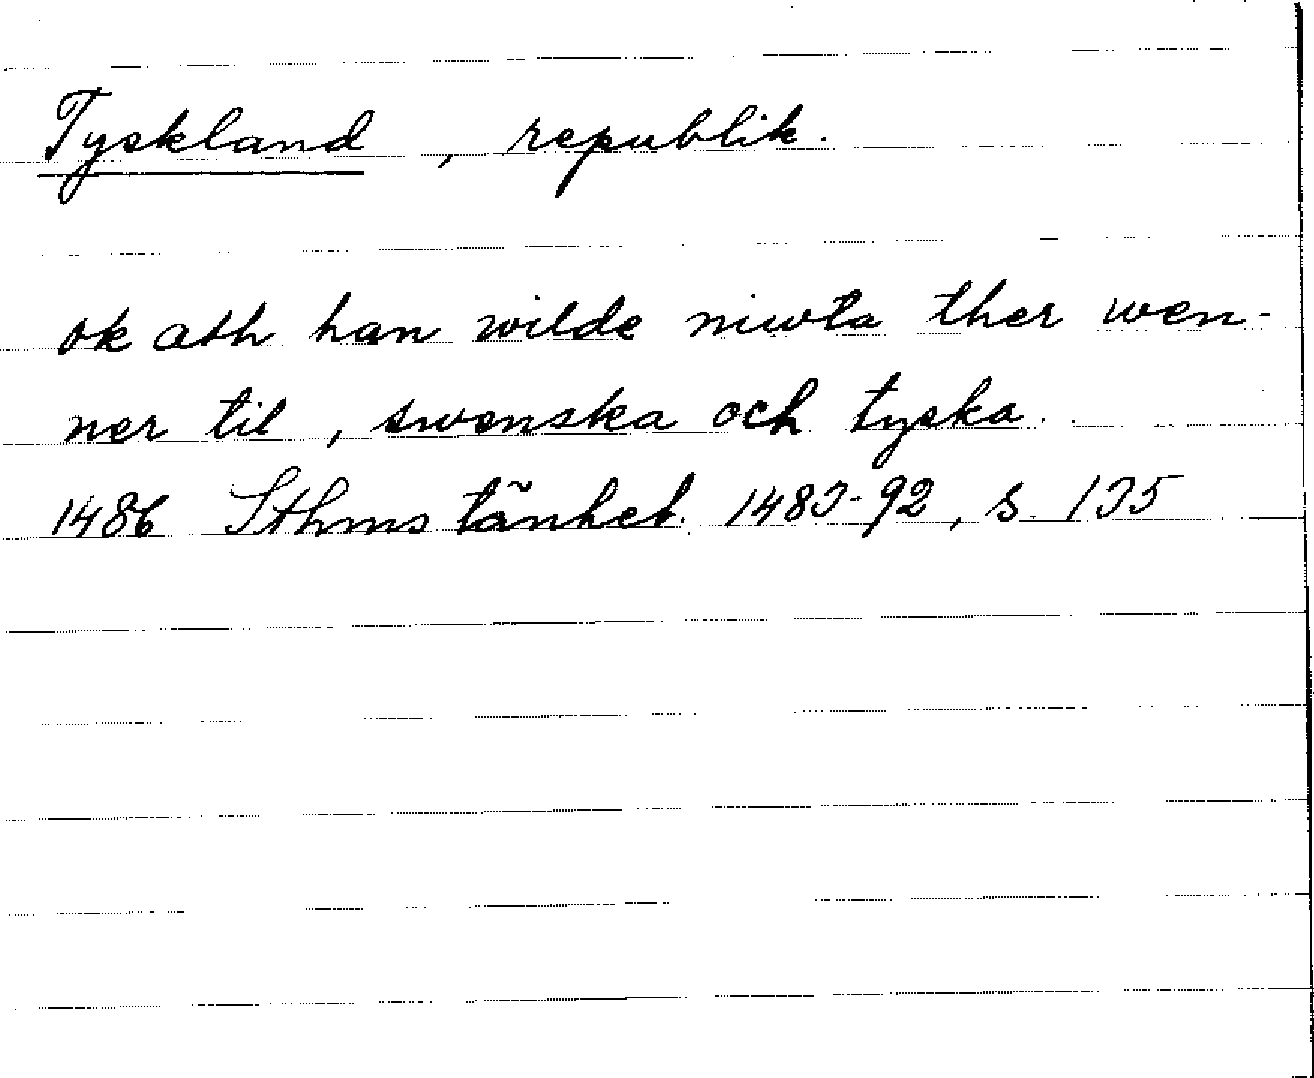 Tyskland, republik.
ok ath han wilde niwta ther wen-
ner til, swenska och tyska.
1486 Sthms tänkeb. 1483-92, s. 135